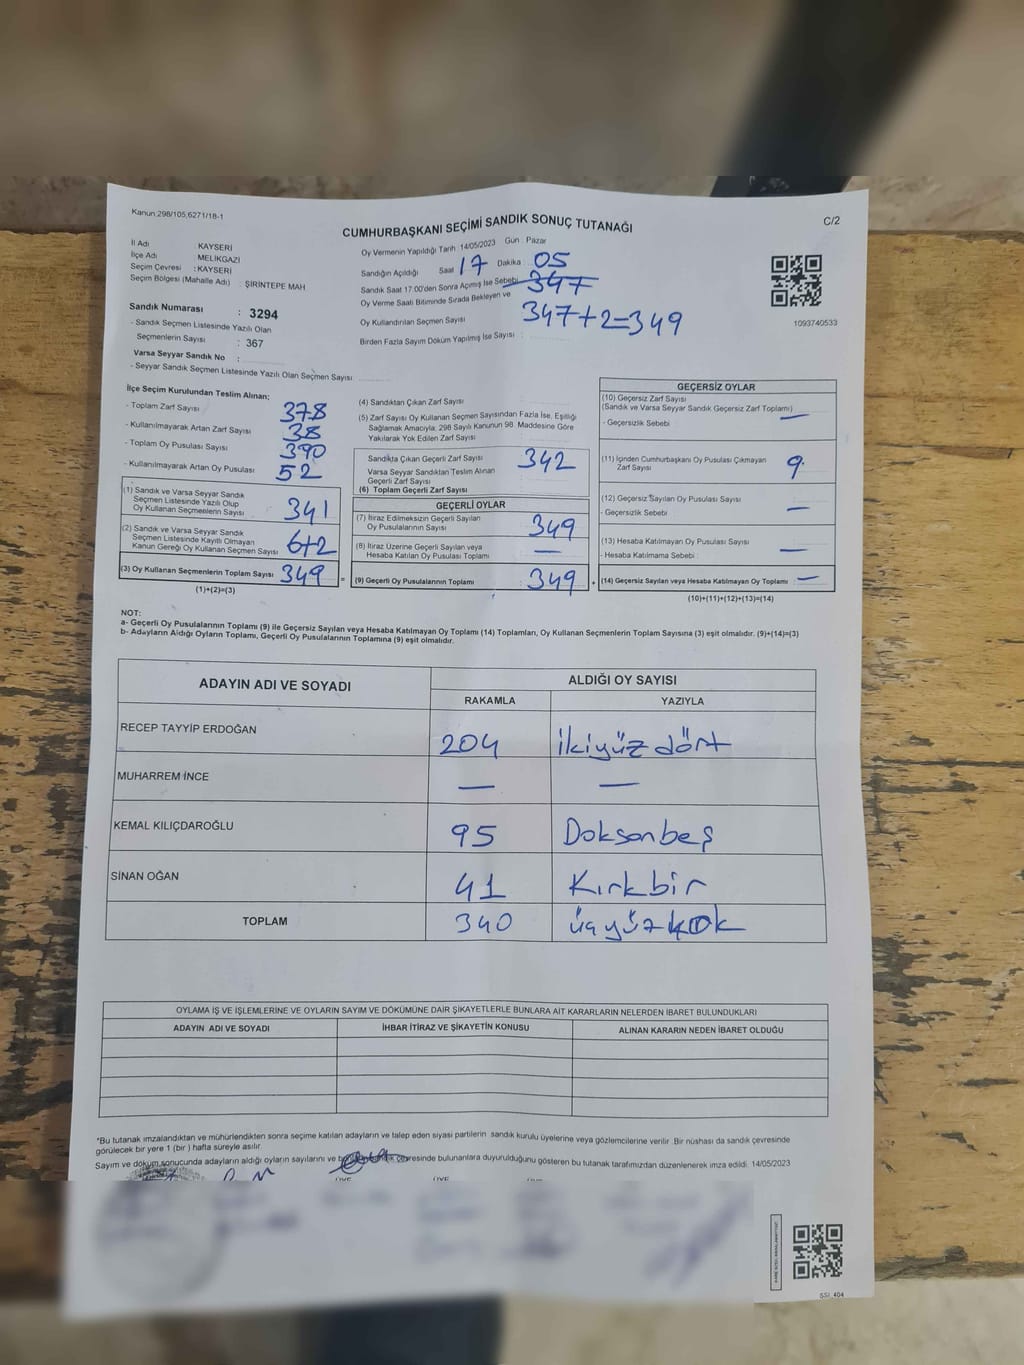 Kanun:298/105,6271/18-1
C/2
CUMHURBAŞKANI SEÇİMİ SANDIK SONUÇ TUTANAĞI
İl Adı KAYSERİ
İlçe Adı MELİKGAZİ
Seçim Çevresi : KAYSERİ
Seçim Bölgesi (Mahalle Adı) : ŞİRİNTEPE MAH
Sandık Numarası : 3294
- Sandık Seçmen Listesinde Yazılı Olan
Seçmenlerin Sayısı : 367
Varsa Seyyar Sandık No :
- Seyyar Sandık Seçmen Listesinde Yazılı Olan Seçmen Sayısı
Oy Vermenin Yapıldığı Tarih 14/05/2023 Gün Pazar
Sandığın Açıldığı Saat 17 Dakika 05
Sandık Saat 17:00'den Sonra Açılmış İse Sebebi 347
Oy Verme Saati Bitiminde Sırada Bekleyen ve
Oy Kullandırılan Seçmen Sayısı 347+2=349
Birden Fazla Sayım Döküm Yapılmış İse Sayısı :
1093740533
İlçe Seçim Kurulundan Teslim Alınan;
- Toplam Zarf Sayısı 378
- Kullanılmayarak Artan Zarf Sayısı 38
- Toplam Oy Pusulası Sayısı 390
- Kullanılmayarak Artan Oy Pusulası 52
(1) Sandık ve Varsa Seyyar Sandık
Seçmen Listesinde Yazılı Olup
Oy Kullanan Seçmenlerin Sayısı 341
(2) Sandık ve Varsa Seyyar Sandık
Seçmen Listesinde Kayıtlı Olmayan
Kanun Gereği Oy Kullanan Seçmen Sayısı 6+2
(3) Oy Kullanan Seçmenlerin Toplam Sayısı 349
(1)+(2)=(3)
(4) Sandıktan Çıkan Zarf Sayısı
(5) Zarf Sayısı Oy Kullanan Seçmen Sayısından Fazla İse, Eşitliği
Sağlamak Amacıyla; 298 Sayılı Kanunun 98. Maddesine Göre
Yakılarak Yok Edilen Zarf Sayısı
Sandıkta Çıkan Geçerli Zarf Sayısı 342
Varsa Seyyar Sandıktan Teslim Alınan
Geçerli Zarf Sayısı
(6) Toplam Geçerli Zarf Sayısı
GEÇERLİ OYLAR
(7) İtiraz Edilmeksizin Geçerli Sayılan
Oy Pusulalarının Sayısı 349
(8) İtiraz Üzerine Geçerli Sayılan veya
Hesaba Katılan Oy Pusulası Toplamı —
= (9) Geçerli Oy Pusulalarının Toplamı 349 +
GEÇERSİZ OYLAR
(10) Geçersiz Zarf Sayısı
(Sandık ve Varsa Seyyar Sandık Geçersiz Zarf Toplamı) —
- Geçersizlik Sebebi
(11) İçinden Cumhurbaşkanı Oy Pusulası Çıkmayan
Zarf Sayısı 9
(12) Geçersiz Sayılan Oy Pusulası Sayısı
- Geçersizlik Sebebi : —
(13) Hesaba Katılmayan Oy Pusulası Sayısı
- Hesaba Katılmama Sebebi : —
(14) Geçersiz Sayılan veya Hesaba Katılmayan Oy Toplamı : —
(10)+(11)+(12)+(13)=(14)
NOT:
a- Geçerli Oy Pusulalarının Toplamı (9) ile Geçersiz Sayılan veya Hesaba Katılmayan Oy Toplamı (14) Toplamları, Oy Kullanan Seçmenlerin Toplam Sayısına (3) eşit olmalıdır. (9)+(14)=(3)
b- Adayların Aldığı Oyların Toplamı, Geçerli Oy Pusulalarının Toplamına (9) eşit olmalıdır.
ADAYIN ADI VE SOYADI ALDIĞI OY SAYISI
RAKAMLA YAZIYLA
RECEP TAYYİP ERDOĞAN 204 ikiyüz dört
MUHARREM İNCE — —
KEMAL KILIÇDAROĞLU 95 Doksanbeş
SİNAN OĞAN 41 Kırkbir
TOPLAM 340 üçyüz
OYLAMA İŞ VE İŞLEMLERİNE VE OYLARIN SAYIM VE DÖKÜMÜNE DAİR ŞİKAYETLERLE BUNLARA AİT KARARLARIN NELERDEN İBARET BULUNDUKLARI
ADAYIN ADI VE SOYADI İHBAR İTİRAZ VE ŞİKAYETİN KONUSU ALINAN KARARIN NEDEN İBARET OLDUĞU
*Bu tutanak imzalandıktan ve mühürlendikten sonra seçime katılan adayların ve talep eden siyasi partilerin sandık kurulu üyelerine veya gözlemcilerine verilir. Bir nüshası da sandık çevresinde
görülecek bir yere 1 (bir ) hafta süreyle asılır.
Sayım ve döküm sonucunda adayların aldığı oyların sayılarını ve çevresinde bulunanlara duyurulduğunu gösteren bu tutanak tarafımızdan düzenlenerek imza edildi. 14/05/2023
ÜYE ÜYE
SSİ_404